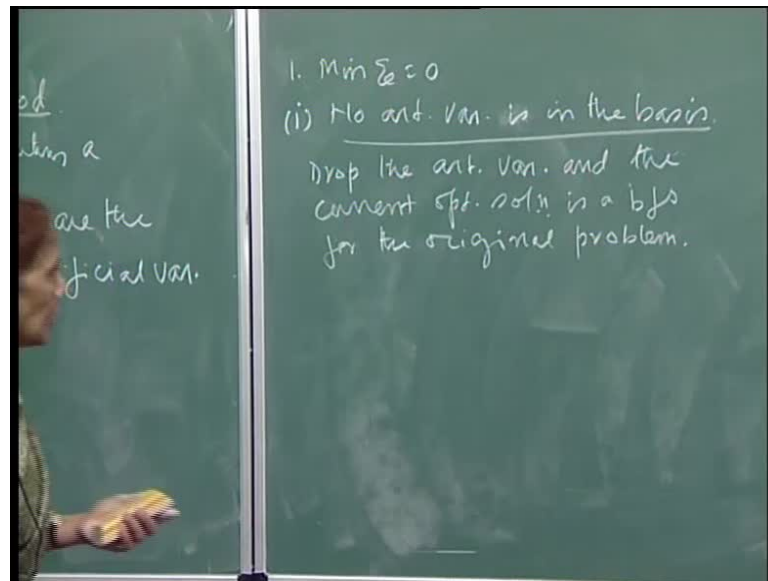 od.
a
are the
ficial var.
1. Min ξ = 0
(i) No art. var. is in the basis.
Drop the art. var. and the
current opt. soln is a bfs
for the original problem.